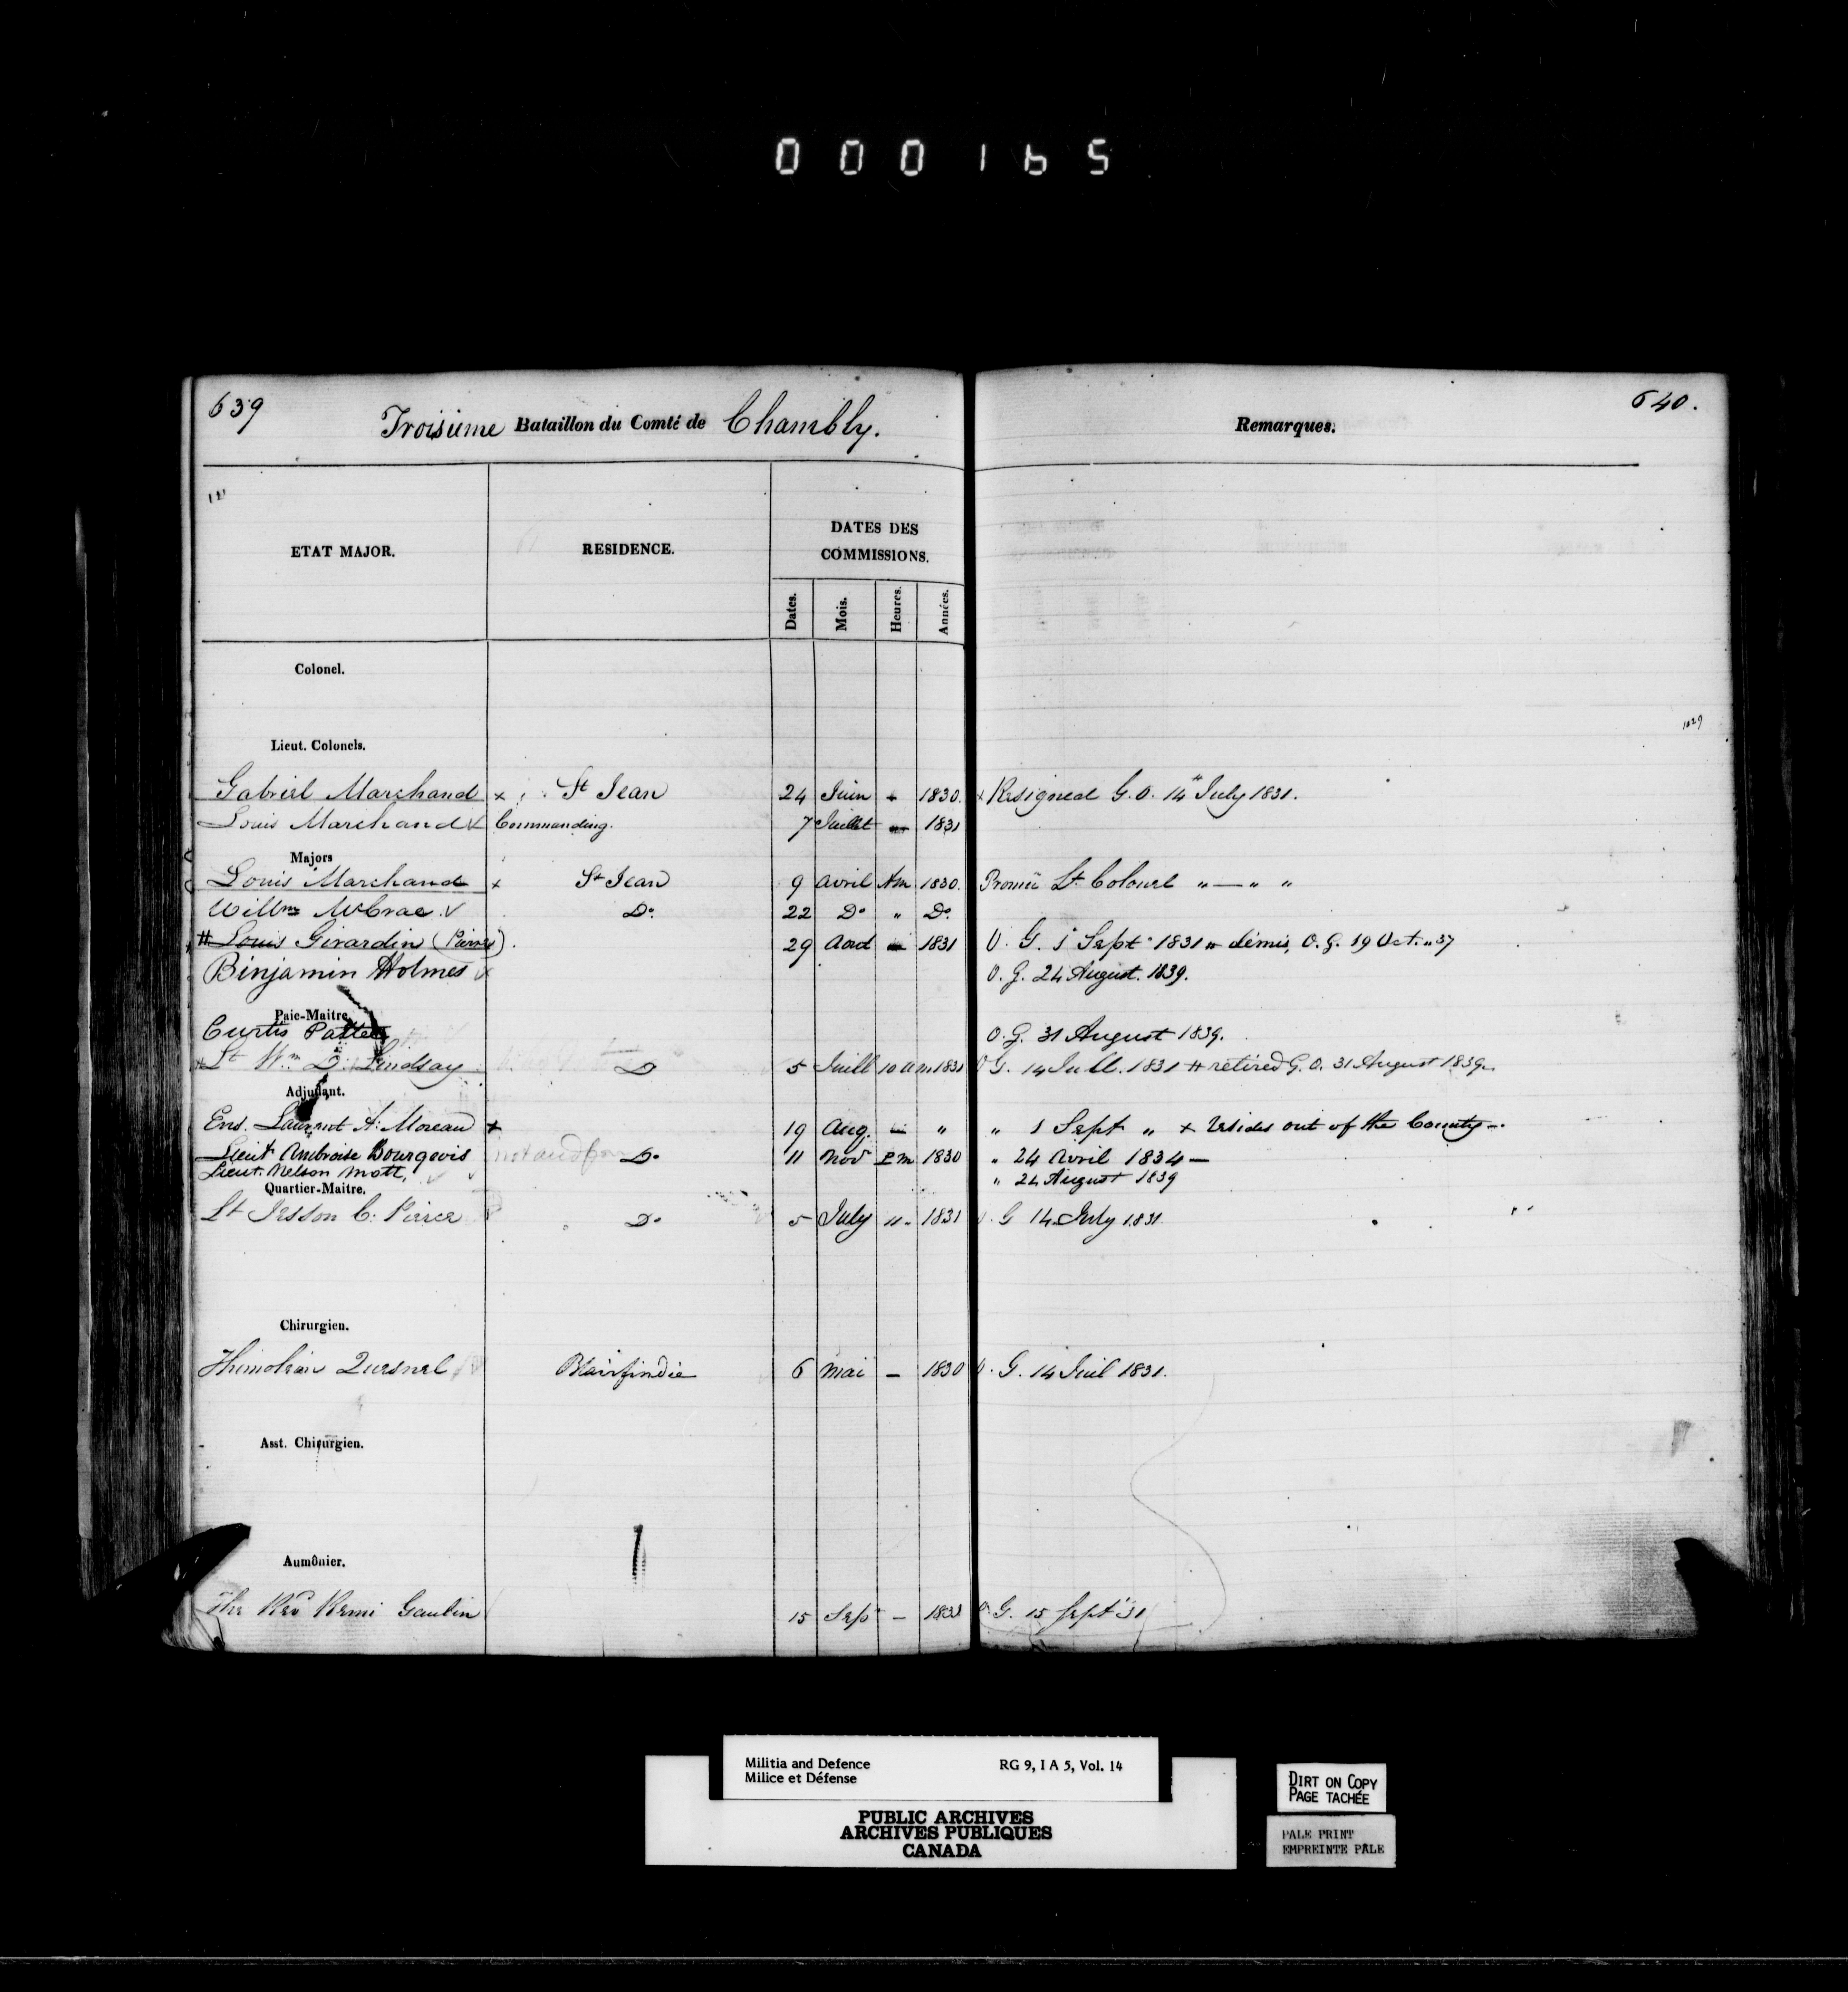 000165
639
Troisième Bataillon du Comté de Chambly.
Remarques.
640.
ETAT MAJOR.
RESIDENCE.
DATES DES
COMMISSIONS.
Dates. Mois. Heures. Années.
Colonel.
1829
Lieut. Colonels.
Gabriel Marchand x St Jean 24 Juin - 1830. x Resigned G.O. 14 July 1831.
Louis Marchand Commanding. 7 Juillet - 1831
Majors
Louis Marchand x St Jean 9 Avril Am 1830. Promû Lt Colonel " — " "
Willm McCrae Do. 22 Do " Do.
# Louis Girardin (Pierre). 29 Aout - 1831 O. G. 1 Sept 1831 # démis, O. G. 19 Oct. "37
Binjamin Holmes O. G. 24 August. 1839.
Paie-Maitre.
Curtis Pattee O. G. 31 August 1839.
Lt Wm D. Lindsay D 5 Juill 10 am 1831 O G. 14 Juill. 1831 # retired G. O. 31 August 1839.
Adjudant.
Ens. Laurent A: Moreau x 19 Aug. - " " 1 Sept " x Resides out of the County -
Lieut Ambroise Bourgeois Do 11 Nov P m 1830 " 24 Avril 1834 —
Lieut. Nelson Mott, " 24 August 1839
Quartier-Maitre.
Lt Jesson C: Pierce Do 5 July 11 " 1831 O. G 14 July 1831.
Chirurgien.
Quesnel Blairfindie 6 Mai - 1830 O. G. 14 Juil 1831.
Asst. Chirurgien.
Aumônier.
The Revd Remi Gaulin 15 Sep - 1831 O G. 15 Sept '31
Militia and Defence RG 9, I A 5, Vol. 14
Milice et Défense
PUBLIC ARCHIVES
ARCHIVES PUBLIQUES
CANADA
DIRT ON COPY
PAGE TACHÉE
PALE PRINT
EMPREINTE PÂLE